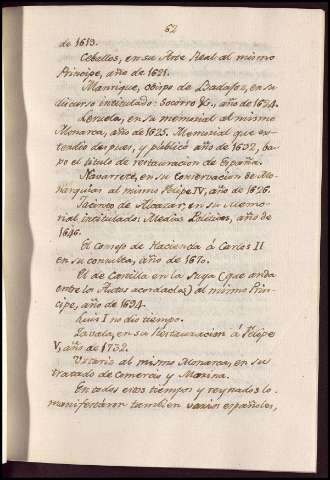 62
de 1619.
Ceballos, en su Arte Real al mismo
Principe, año de 1621.
Manrique, obispo de Badajoz, en su
discurso intitulado: Socorro &c., año de 1624.
Leruela, en su memorial al mismo
Monarca, año de 1625. Memorial que ex-
tendio despues, y publicó año de 1632, ba-
xo el titulo de restauracion de España.
Navarrete, en su conservacion de Mo-
narquias al mismo Felipe IV, año de 1626.
Jacinto de Alcazar, en su Memo-
rial intitulado: Medios Politicos, año de
1646.
El consejo de Hacienda á Carlos II
en su consulta, año de 1670.
El de Castilla en la suya (que anda
entre los Autos acordados) al mismo Prin-
cipe, año de 1694.
Luis I no dio tiempo.
Zavala, en su Restauracion á Felipe
V, año de 1732.
Ustariz al mismo Monarca, en su
tratado de Comercio y Marina.
En todos estos tiempos y reynados lo
manifestaron tambien varios españoles,